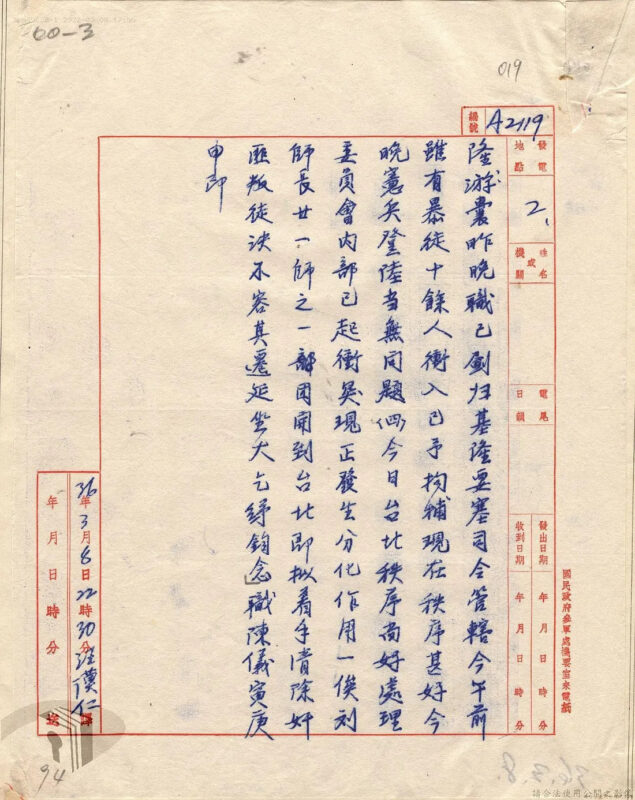 60-3
019
編號 A2119
發電地點 2,
姓名或機關
電尾日韻
發出日期 年 月 日 時 分
收到日期 年 月 日 時 分
國民政府參軍處機要室來電紙
隆游囊昨晚職已劃归基隆要塞司令管轄今午前
雖有暴徒十餘人衝入已予拘補現在秩序甚好今
晚憲兵登陸当無问題㈣今日台北秩序尚好處理
委員會内部已起衝突現正發生分化作用一俟刘
師長廿一師之一部团開到台北即拟着手清除奸
匪叛徒决不容其遷延坐大乞紓鈞念職陳儀寅庚
申印
36年3月8日22時30分 漢仁譯
年 月 日 時 分
94
請合法使用公開之影像